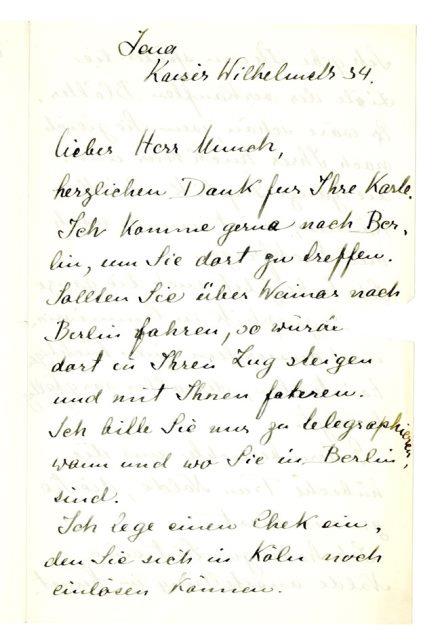 Jena
Kaiser Wilhelmstr 34.
lieber Herr Munch,
herzlichen Dank fur Ihre Karte.
Ich komme gerna nach Ber-
lin, um Sie dort zu treffen.
Sollten Sie über Weimar nach
Berlin fahren, so würde
dort in Ihren Zug steigen
und mit Ihnen fahren.
Ich bitte Sie mir zu telegraphieren,
wann und wo Sie in Berlin
sind.
Ich lege einen Chek ein,
den Sie sich in Köln noch
einlösen können.